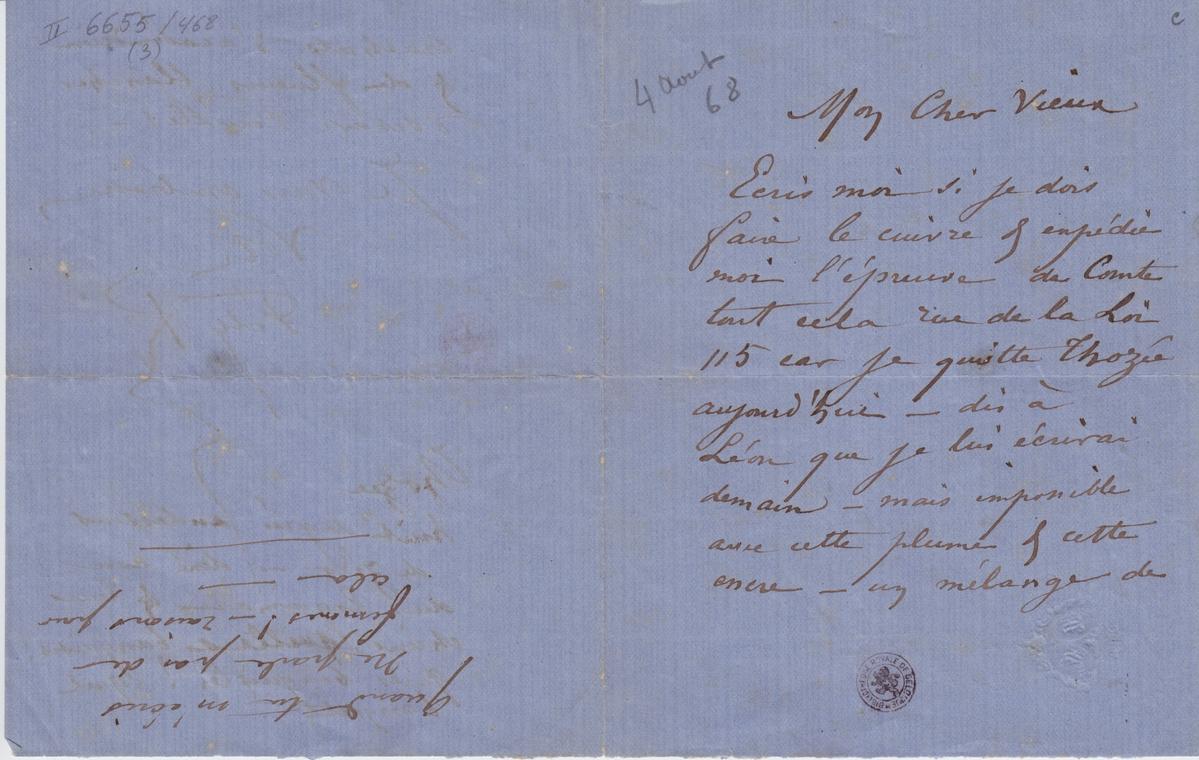 II 6655/468
(3)
c
4 Aout
68
Mon Cher Vieux
Ecris moi si je dois
faire le cuivre & expédie
moi l'épreuve de Comte
tout cela rue de la Loi
115 car je quitte Thozée
aujourd'hui – dis à
Léon que je lui écrirai
demain – mais impossible
avec cette plume & cette
encre – un mélange de
Quand tu m'écris
ne parle pas de
femmes! –
cela –